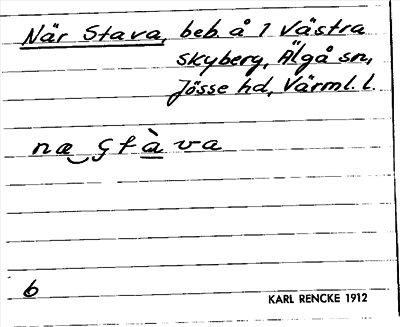 När Stava, beb. å 1 Västra
Skyberg, Älgå sn,
Jösse hd, Värml. l.
næ‿ç fàva
6
KARL RENCKE 1912